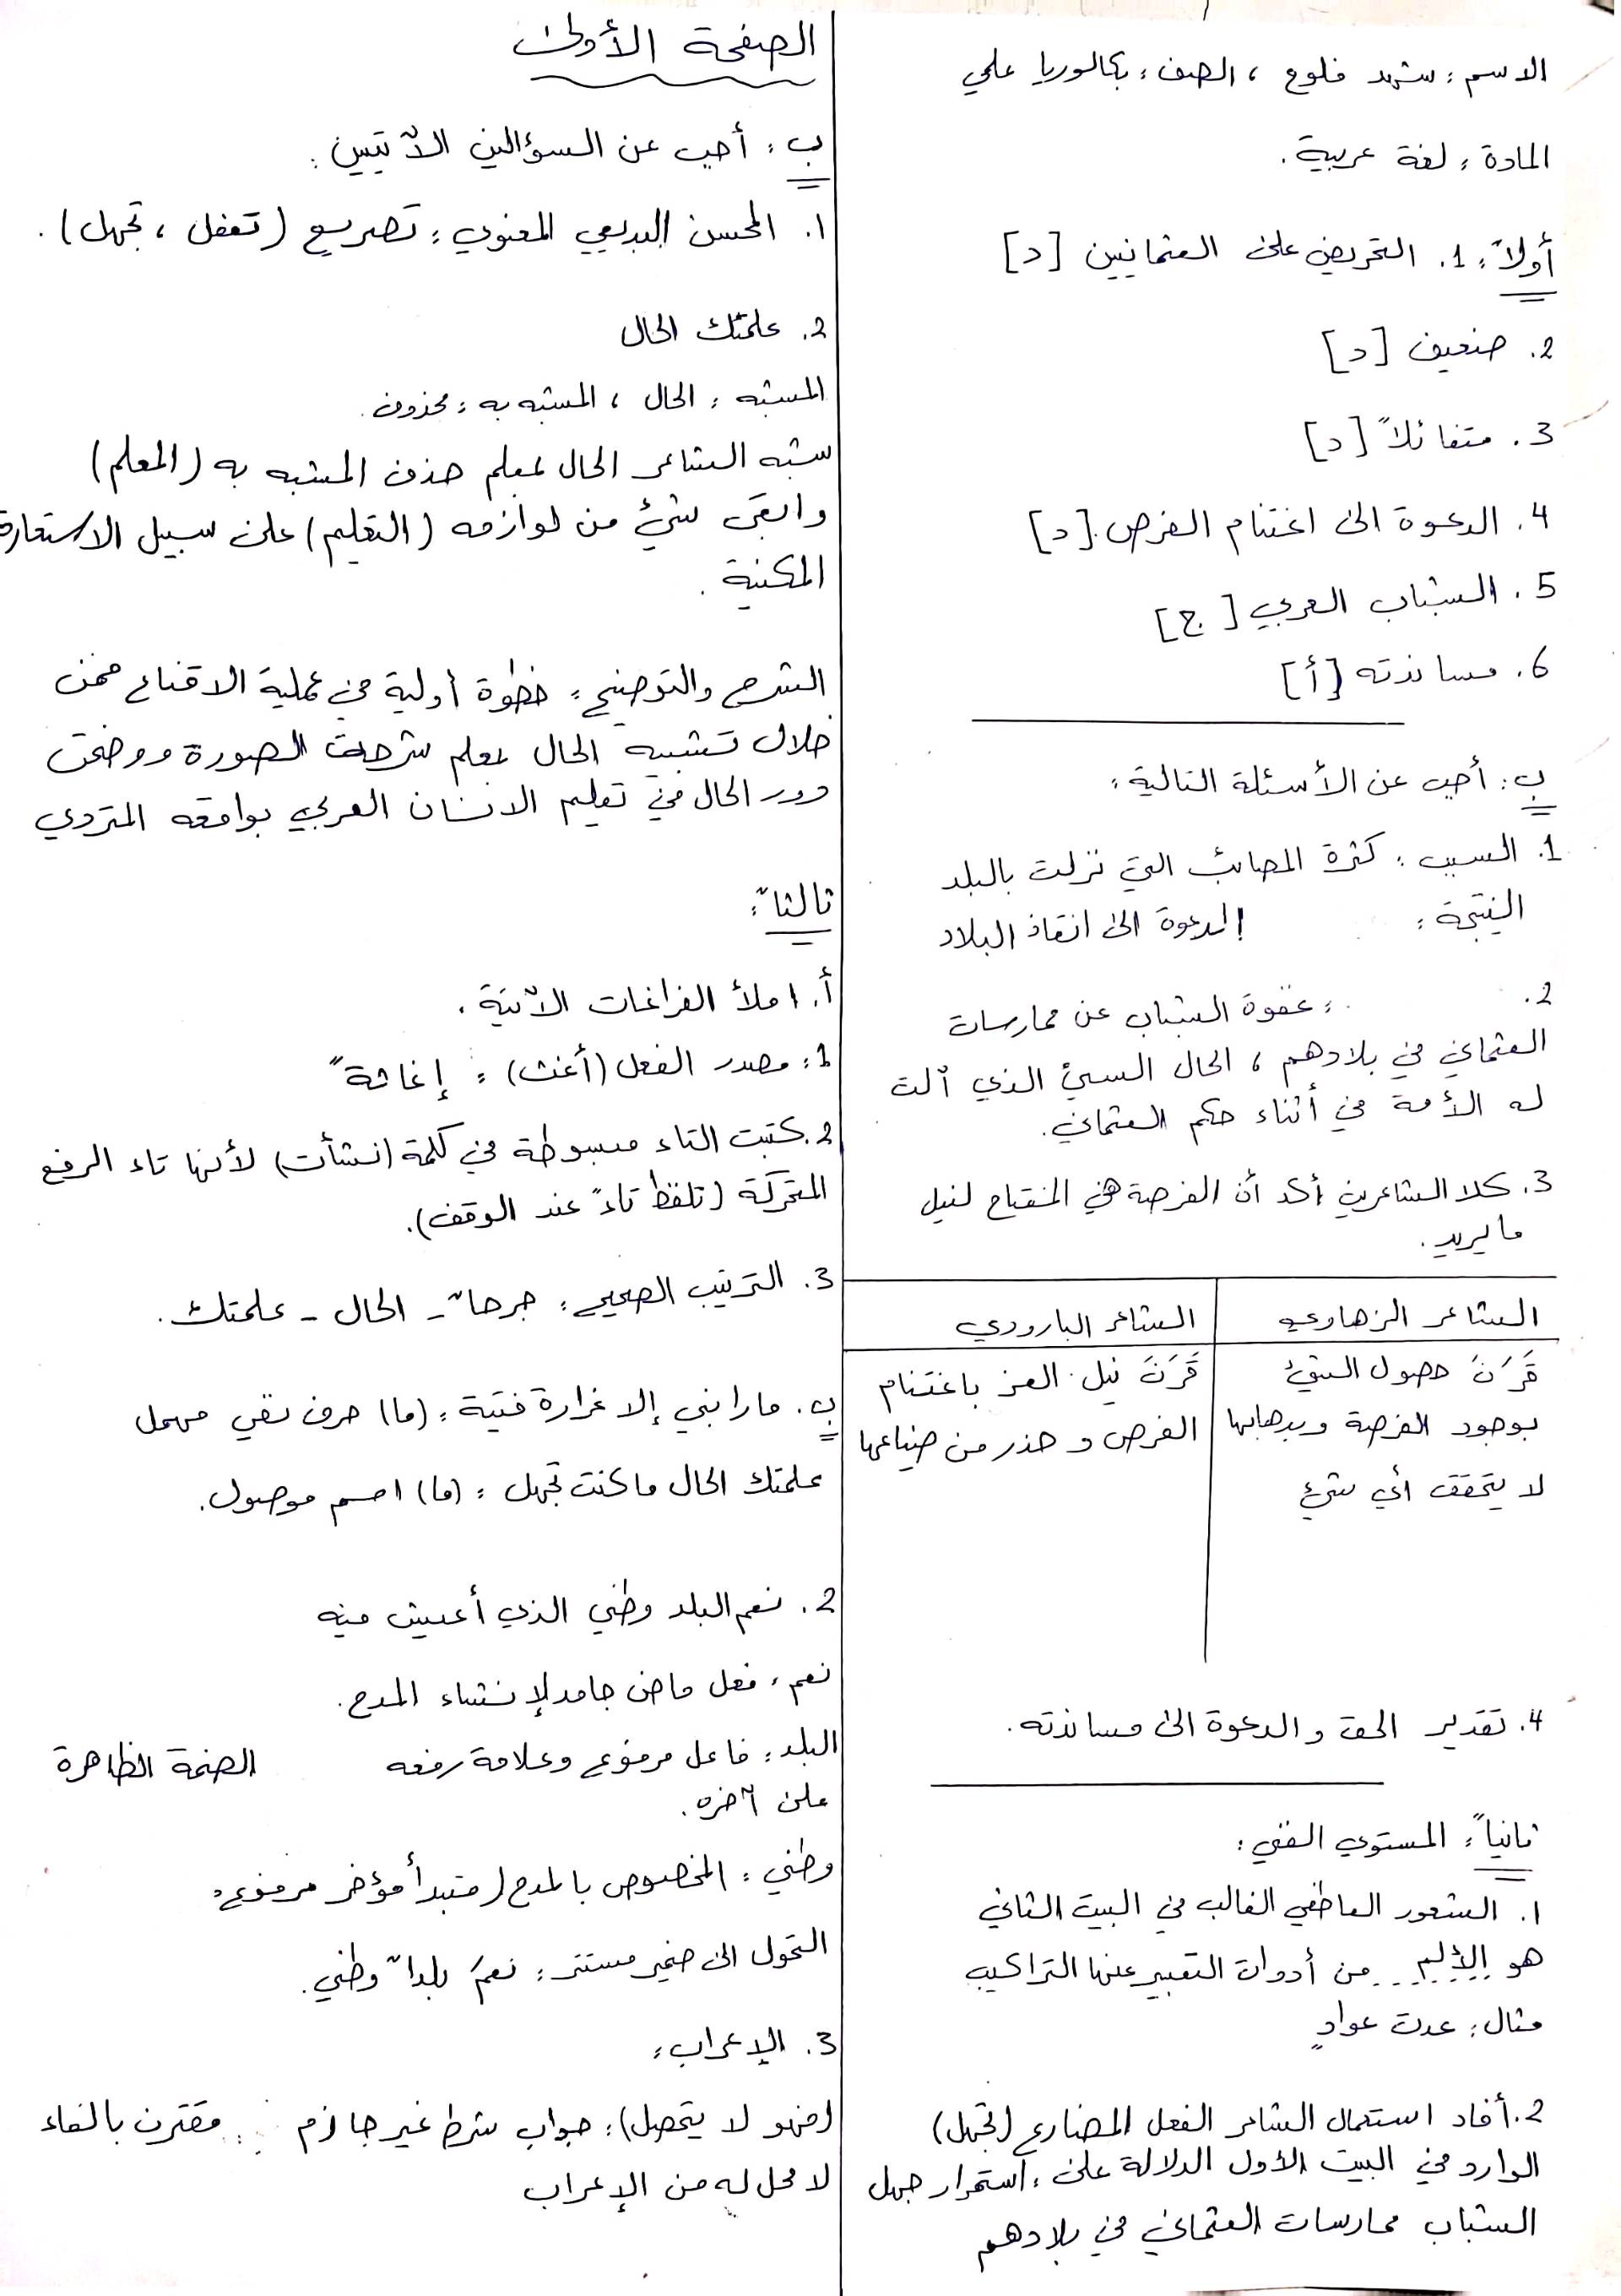 الاسم: شهد فلوح ، الصف: بكالوريا علمي
المادة: لغة عربية.
أولاً: 1. التحريض على العثمانيين [د]
2. ضعيف [د]
3. متفائلاً [د]
4. الدعوة الى اغتنام الفرص. [د]
5. الشباب العربي [ج]
6. مساندته [أ]
ب: أجب عن الأسئلة التالية:
1. السبب: كثرة المصائب التي نزلت بالبلد
النتيجة: الدعوة الى انقاذ البلاد
2. : غفوة الشباب عن ممارسات
العثماني في بلادهم ، الحال السيئ الذي آلت
له الأمة في أثناء حكم العثماني.
3. كلا الشاعرين أكد أن الفرصة هي المفتاح لنيل
ما يريد.
الشاعر الزهاوي
الشاعر البارودي
قَرَنَ حصول الشيئ
بوجود الفرصة وبذهابها
لا يتحقق أي شيئ
قَرَنَ نيل العز باغتنام
الفرص و حذر من ضياعها
4. تقدير الحق و الدعوة الى مساندته.
ثانياً: المستوى الفني:
1. الشعور العاطفي الغالب في البيت الثاني
هو الألم من أدوات التعبير عنها التراكيب
مثال: عدت عوادٍ
2. أفاد استعمال الشاعر الفعل المضارع (تجهل)
الوارد في البيت الأول الدلالة على: استمرار جهل
الشباب ممارسات العثماني في بلادهم
الصفحة الأولى
ب: أجب عن السؤالين الآتيين:
1. المحسن البديعي المعنوي: تصريع (تغفل ، تجهل).
2. علمتك الحال
المشبه: الحال ، المشبه به: محذوف.
شبه الشاعر الحال بمعلم حذف المشبه به (المعلم)
وابقى شيئ من لوازمه (التعليم) على سبيل الاستعارة
المكنية.
الشرح والتوضيح: خطوة أولية في عملية الاقناع فمن
خلال تشبيه الحال بمعلم شرحت الصورة ووضحت
دور الحال في تعليم الانسان العربي بواقعه المتردي
ثالثاً:
أ. املأ الفراغات الآتية.
1: مصدر الفعل (أغث): إغاثةً
2. كتبت التاء مبسوطة في كلمة (نشأت) لأنها تاء الرفع
المتحركة (تلفظ تاءً عند الوقف).
3. الترتيب الصحيح: جرحاً - الحال - علمتك.
ب. ما رابني إلا غرارة فتية: (ما) حرف نفي مهمل
علمتك الحال ما كنت تجهل: (ما) اسم موصول.
2. نعم البلد وطني الذي أعيش فيه
نعم: فعل ماض جامد لإنشاء المدح.
البلد: فاعل مرفوع وعلامة رفعه الضمة الظاهرة
على آخره.
وطني: المخصوص بالمدح (مبتدأ مؤخر مرفوع)
التحول الى ضمير مستتر: نعمَ بلداً وطني.
3. الإعراب:
(فهو لا يحصل): جواب شرط غير جازم مقترن بالفاء
لا محل له من الإعراب